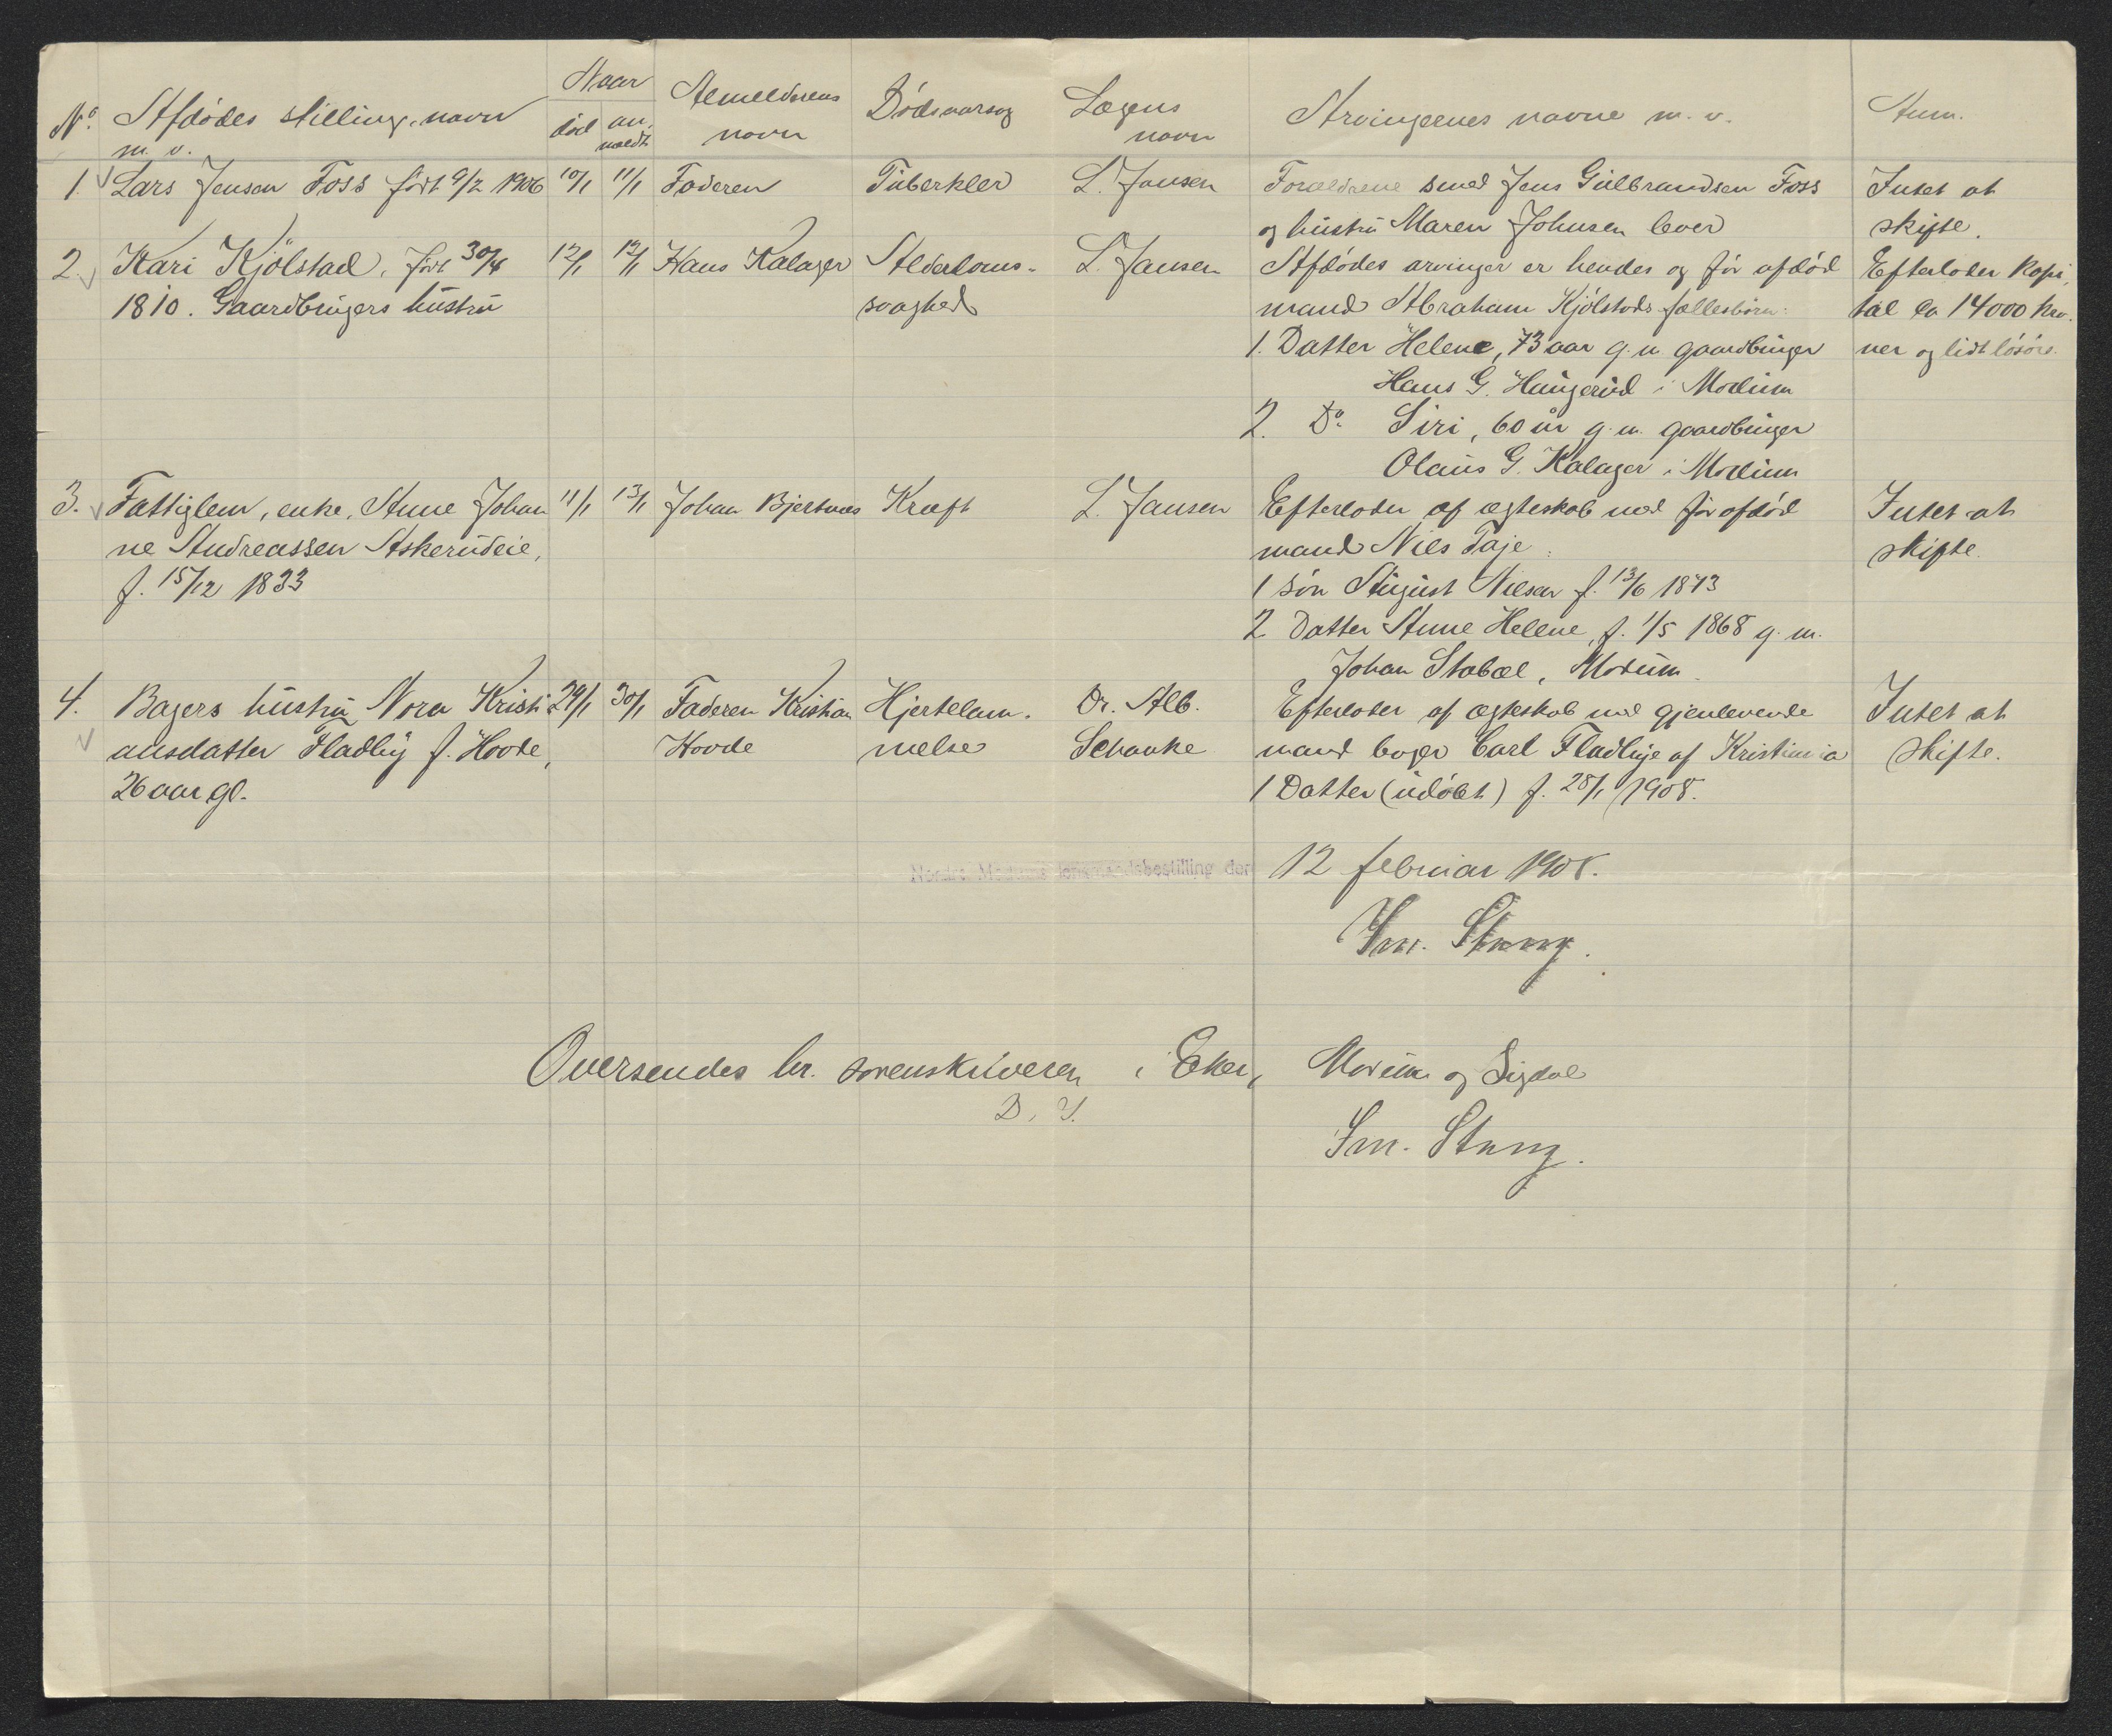 No. Afdødes stilling, navn m. v. Naar død anmeldt Anmelderens navn Dødsaarsag Lægens navn Arvingernes navne m. v. Anm.
1. Lars Jensen Foss født 9/2 1906 10/1 11/1 Faderen Tuberkler L. Jansen Forældrene smed Jens Gulbrandsen Foss Intet at
og hustru Maren Johnsen lever skifte.
2. Kari Kjølstad, født 30/4 12/1 12/1 Hans Kalager Alderdoms- L. Jansen Afdødes arvinger er hendes og før afdød Efterlader kapi-
1810. Gaardbrugers hustru svaghed mand Abraham Kjølstads fællesbørn: tal ca 14000 kro-
1. Datter Helene, 73 aar g. m. gaardbruger ner og lidt løsøre.
Hans G. Haugerud i Modum
2. Do. Siri, 60 år g. m. gaardbruger
Olaus G. Kalager i Modum
3. Fattiglem, enke, Anne Johan 11/1 13/1 Johan Bjertnæs Kræft L. Jansen Efterlader af ægteskab med før afdød Intet at
ne Andreassen Askerudeie, mand Nils Taje: skifte.
f. 15/12 1833 1 søn August Nilsen f. 13/6 1873
2 Datter Anne Helene, f. 1/5 1868 g. m.
Johan Stabæl, Modum.
4. Bagers hustru Nora Kristi 29/1 30/1 Faderen Kristian Hjertelam- Dr. Alb. Efterlader af ægteskab med gjenlevende Intet at
ansdatter Fladby f. Hovde, Hovde melse Schanke mand bager Carl Fladbye af Kristiania skifte.
26 aar gl. 1 Datter (udøbt) f. 28/1 1908.
Nordre Modums lensmandsbestilling den 12 februar 1908.
Sm. Stang.
Oversendes hr. sorenskriveren i Eker, Modum og Sigdal
D. S.
Sm. Stang.